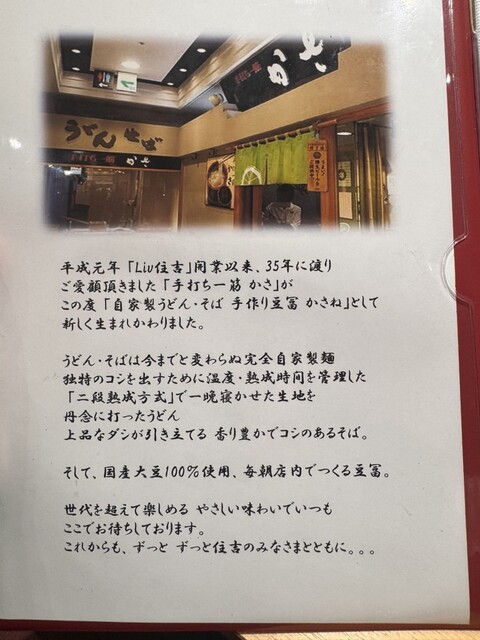 うどん そば
手打ち一筋 かさ
かさ
平成元年「Liv住吉」開業以来、35年に渡り
ご愛顧頂きました「手打ち一筋 かさ」が
この度「自家製うどん・そば 手作り豆冨 かさね」として
新しく生まれかわりました。
うどん・そばは今までと変わらぬ完全自家製麺
独特のコシを出すために温度・熟成時間を管理した
「二段熟成方式」で一晩寝かせた生地を
丹念に打ったうどん
上品なダシが引き立てる 香り豊かでコシのあるそば。
そして、国産大豆100%使用、毎朝店内でつくる豆冨。
世代を超えて楽しめる やさしい味わいでいつも
ここでお待ちしております。
これからも、ずっと ずっと住吉のみなさまとともに。。。